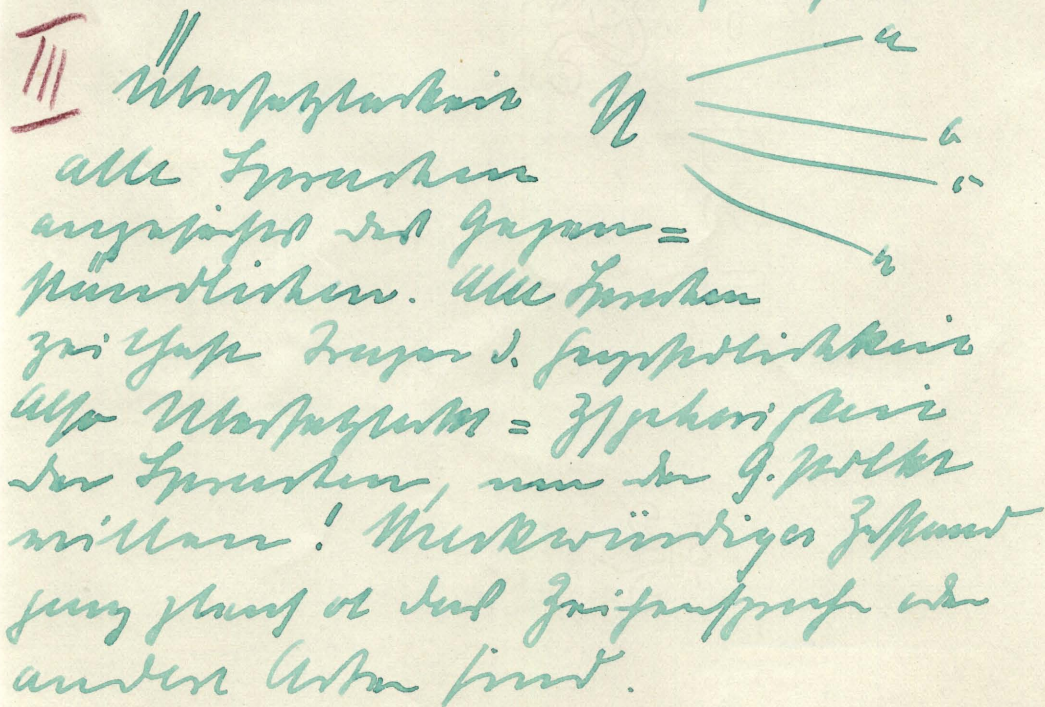 III
Übersetzbarkeit
a
b
c
alle Sprachen
angesichts des Gegen=
ständlichen. Alle Sprachen
Träger d. Ggstdlichkeit
Also Übersetzbkt = Zsgehörigkeit
der Sprachen, um der G.stdlkt
willen! Merkwürdiger Zustand
ganz gleich ob das Zeichensprache oder
andere Arten sind.